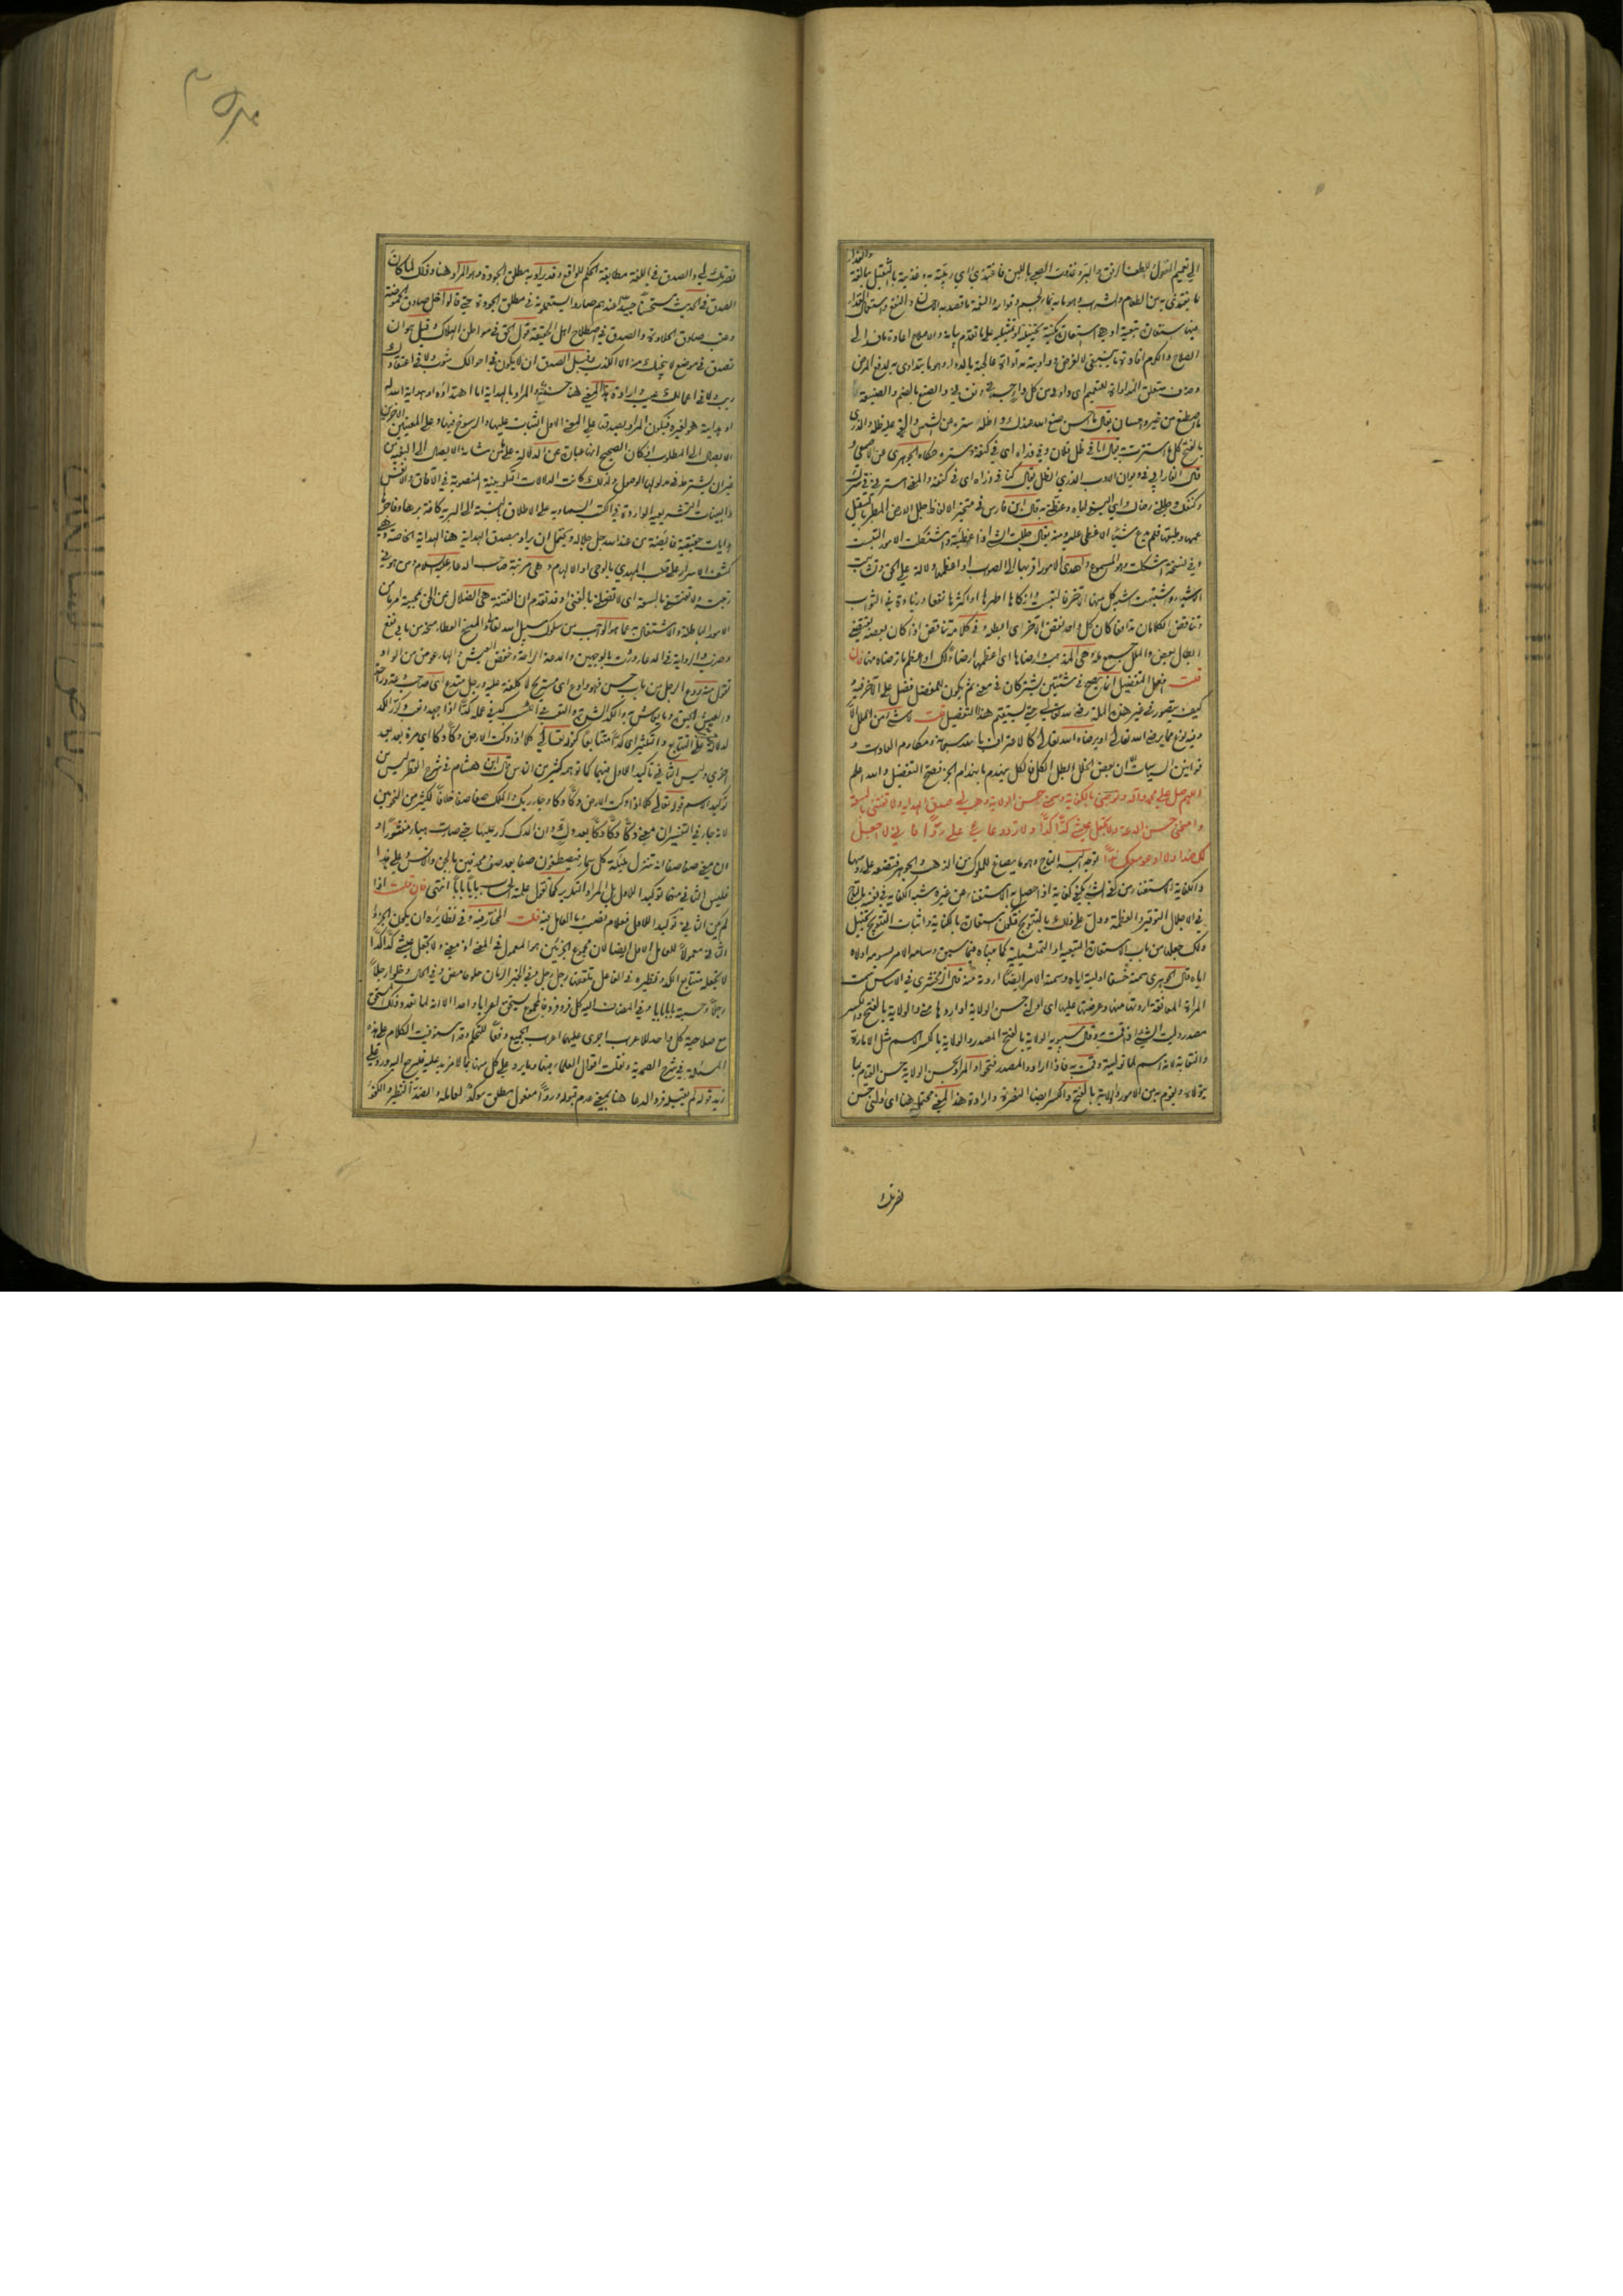 والغذاء
الى تعميم القول اللطف الرفق والبر وغذوت الصبي باللبن فاغتذى اي ربيته به وغذيته بالتثقيل مبالغة
ما يغتذى به من الطعام والشراب وهو ما به نماء الجسم وقوامه والنعمة ما قصد به الاحسان والنفع واستعمال الغذاء
فيها استعارة تبعية او هي استعارة مكنية تخييلية او تمثيلية على ما تقدم بيانه والاصلاح اعادة ما فسد الى
الصلاح والكرم افادة ما ينبغي لا لغرض وداويته مداواة عالجته بالدواء وهو ما يتداوى به لدفع المرض
وحذف متعلق المداواة للتعميم اي داوني من كل داء والصنع بالضم والصنيعة
ما اصطنع من خير واحسان يقال ما احسن صنع الله عندك واظله ستره عن الشمس والقى عليه ظله والذرى
بالفتح كل ما استترت به يقال انا في ظل فلان وفي ذراه اي في كنفه وستره حكاه الجوهري عن الاصمعي و
قال الفارابي في ديوان الادب الذرى الظل يقال كنا في ذراه اي في كنفه والمعنى استرني في سترك
وكنفك وجللني رضاك اي البسني اياه وغطني به قال ابن فارس في متخير الالفاظ جلل الارض المطر بالتثقيل
عمها وطبقها فلم يدع شيئا الا غطى عليه ومنه يقال جللت الشيء اذا غطيته واشتكلت الامور التبست
وفي نسخة اشكلت وهو المسموع واهدى الامور اقربها الى الصواب او اعظمها دلالة على الحق وتشابهت
الاشياء واشتبهت اشبه كل منها الآخر فالتبست وازكاها اطهرها او اكثرها نفعا وزيادة في الثواب
وتناقض الكلامان تدافعا كان كل واحد نقض الآخر اي ابطله وفي كلامه تناقض اذا كان بعضه يقتضي
ابطال بعض والملل جمع ملة وهي المذهب وارضاها اي اعظمها ارضاء لك او اعظم ما ترضاه منها فان
قلت افعل التفضيل انما يصح في شيئين يشتركان في معنى ثم يكون للمفضل فضل على الآخر فيه و
كيف يتصور في غير هذه الملة رضى لله تعالى حتى يستقيم هذا التفضيل قلت ما شيء من الملل الا
وفيه نوع مما يرضي الله تعالى او يرضاه الله تعالى كالاعتراف بالله سبحانه ومكارم العادات و
قوانين السياسات لان بعض الخلل ابطل الكل فالكل ينهدم بانهدام الجزء فصح التفضيل والله اعلم
اللهم صل على محمد وآله وتوجني بالكفاية وسمني حسن الولاية وهب لي صدق الهداية ولا تفتني بالسعة
وامنحني حسن الدعة ولا تجعل عيشي كدا كدا ولا ترد دعائي علي ردا فاني لا اجعل
لك ضدا ولا ادعو معك ندا توجه البسه التاج وهو ما يصاغ للملوك من الذهب والجوهر فتضعه على رؤسها
والكفاية الاستغناء من كفى الشيء يكفي كفاية اذا حصل به الاستغناء عن غيره شبه الكفاية في نفسه بالتاج
في الاجلال والتوقير والعظمة ودل على ذلك بالتتويج فتكون استعارة بالكناية واثبات التتويج تخييل
ولك جعلها من باب الاستعارة التبعية او التمثيلية كما بيناه فيما سبق وسامه الامر يسومه اولاه
اياه قال الجوهري سمته خسفا اوليته اياه وسمته الامر ايضا اردته منه قال الزمخشري في الاساس سمت
المرأة المعانقة اردتها منها وعرضتها عليها اي اولني حسن الولاية او اردها مني والولاية بالفتح والكسر
مصدر وليت الشيء اذا قمت به وقال سيبويه الولاية بالفتح المصدر والولاية بالكسر الاسم مثل الامارة
والنقابة لانه اسم لما توليته وقمت به فاذا ارادوا المصدر فتحوا والمراد بحسن الولاية حسن القيام بما
يتولاه ويقوم به من الامور والولاية بالفتح والكسر ايضا النصرة وارادة هذا المعنى محتملة هنا اي اولني حسن
نصرتك
نصرتك لي والصدق في اللغة مطابقة الحكم للواقع وقد يراد به مطلق الجودة وهو المراد هنا وذلك لما كان
الصدق في الحديث مستحسنا جيدا عندهم صاروا يستعملونه في مطلق الجودة حتى قالوا خل صادق الحموضة
وعنب صادق الحلاوة والصدق في اصطلاح اهل الحقيقة قول الحق في مواطن الهلاك وقيل هو ان
تصدق في موضع لا ينجيك منه الا الكذب وقيل الصدق ان لا يكون في احوالك شوب ولا في اعتقادك
ريب ولا في اعمالك عيب وارادة هذا المعنى هنا حسنة والمراد بالهداية اما اهتداؤه او هداية الله له
او هدايته هو لغيره فيكون المراد بصدقها على المعنى الاول الثبات عليها والرسوخ فيها وعلى المعنيين الآخرين
الايصال الى المطلوب اذ كان الصحيح انها عبارة عن الدلالة على ما من شأنه الايصال الى البغية من
غير ان يشترط في مدلولها الوصول ولذلك كانت الدلالات التكوينية المنصوبة في الآفاق والانفس
والبينات التشريعية الواردة في الكتب السماوية على الاطلاق بالنسبة الى البرية كافة برها وفاجرها
هدايات حقيقية فائضة من عند الله جل جلاله ويحتمل ان يراد بصدق الهداية هنا الهداية الخاصة وهي
كشف الاسرار على قلب المهدي بالوحي او الالهام وهي مرتبة صاحب الدعاء عليه السلام ومن هو في
رتبته ولا تفتني بالسعة اي لا تضلني بالغنى وقد تقدم ان الفتنة هي الضلال عن الحق بمحبة امر ما من
الامور الباطلة والاشتغال به عما هو الواجب من سلوك سبيل الله تعالى والمنح العطاء منحه من بابي نفع
وضرب والرواية في الدعاء وردت بالوجهين والدعة الراحة وخفض العيش والهاء عوض من الواو
تقول منه ودع الرجل من باب حسن فهو وادع اي مستريح لا كلفة عليه ورجل متدع اي صاحب دعة وراحة
والعيش الحيوة وما يعاش به والكد الشدة والتعب في الكسب كد في عمله كدا اذا اجهد نفسه وكرر الكد
للدلالة على التتابع والتكثير اي كدا متتابعا كقوله تعالى كلا اذا دكت الارض دكا دكا اي مرة بعد
اخرى وليس الثاني تأكيدا للاول فيهما كما توهمه كثير من الناس قال ابن هشام في شرح القطر ليس من
توكيد الاسم قوله تعالى كلا اذا دكت الارض دكا دكا وجاء ربك والملك صفا صفا خلافا لكثير من النحويين
لانه جاء في التفسير ان معنى دكا دكا دكا بعد دك وان الدك كرر عليها حتى صارت هباء منثورا و
ان معنى صفا صفا انه تنزل ملائكة كل سماء فيصطفون صفا بعد صف محدقين بالجن والانس وعلى هذا
فليس الثاني فيهما توكيدا للاول بل المراد التكرير كما تقول علمته الحساب بابا بابا انتهى فان قلت اذا
لم يكن الثاني توكيدا للاول فعلام نصب وما العامل فيه قلت المختار فيه وفي نظائره ان يكون الجزء
الثاني معمولا للعامل الاول ايضا لان مجموع الجزئين هو المعمول في المعنى اذ معنى ولا تجعل عيشي كدا كدا
لا تجعله متتابع الكد ونظيره في الفاعل يتلقون رجل رجل وفي الخبر الرمان حلو حامض وفي الحال دخلوا رجلا
رجلا وحسبته بابا بابا وفي المضاف اليه كل فرد فرد فالمجموع يستحق اعرابا واحدا الا انه لما تعدد ذلك المستحق
مع صلاحية كل واحد للاعراب اجري عليهما اعراب الجميع دفعا للتحكم وقد استوفيت الكلام على هذه
المسئلة في شرح الصمدية ونقلت اقوال العلماء فيها وما يرد على كل منها بما لا مزيد عليه فليرجع اليه ورد عليه
زيد قوله لم يقبله فرد الدعاء هنا بمعنى عدم قبوله وردا مفعول مطلق مؤكد لعامله والضد النظير والكفؤ